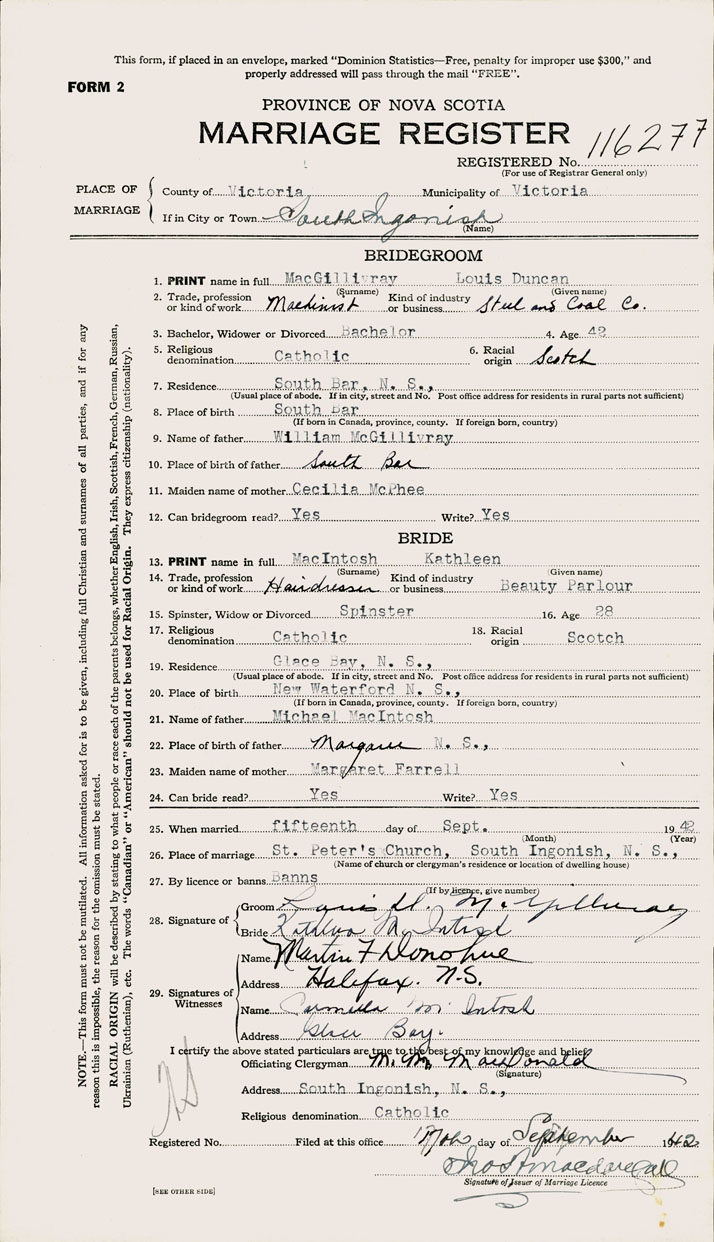 This form, if placed in an envelope, marked "Dominion Statistics—Free, penalty for improper use $300," and
properly addressed will pass through the mail "FREE".
FORM 2
PROVINCE OF NOVA SCOTIA
MARRIAGE REGISTER
116277
REGISTERED No.
(For use of Registrar General only)
PLACE OF MARRIAGE
County of Victoria Municipality of Victoria
If in City or Town South Ingonish
(Name)
BRIDEGROOM
1. PRINT name in full MacGillivray Louis Duncan
(Surname) (Given name)
2. Trade, profession or kind of work Machinist Kind of industry or business Steel and Coal Co.
3. Bachelor, Widower or Divorced Bachelor 4. Age 42
5. Religious denomination Catholic 6. Racial origin Scotch
7. Residence South Bar, N. S.,
(Usual place of abode. If in city, street and No. Post office address for residents in rural parts not sufficient)
8. Place of birth South Bar
(If born in Canada, province, county. If foreign born, country)
9. Name of father William McGillivray
10. Place of birth of father South Bar
11. Maiden name of mother Cecilia McPhee
12. Can bridegroom read? Yes Write? Yes
BRIDE
13. PRINT name in full MacIntosh Kathleen
(Surname) (Given name)
14. Trade, profession or kind of work Hairdresser Kind of industry or business Beauty Parlour
15. Spinster, Widow or Divorced Spinster 16. Age 28
17. Religious denomination Catholic 18. Racial origin Scotch
19. Residence Glace Bay, N. S.,
(Usual place of abode. If in city, street and No. Post office address for residents in rural parts not sufficient)
20. Place of birth New Waterford N. S.,
(If born in Canada, province, county. If foreign born, country)
21. Name of father Michael MacIntosh
22. Place of birth of father Margaree N. S.,
23. Maiden name of mother Margaret Farrell
24. Can bride read? Yes Write? Yes
25. When married fifteenth day of Sept. 1942
(Month) (Year)
26. Place of marriage St. Peter's Church, South Ingonish, N. S.,
(Name of church or clergyman's residence or location of dwelling house)
27. By licence or banns Banns
(If by licence, give number)
28. Signature of
Groom Louis D. McGillivray
Bride Kathleen McIntosh
29. Signatures of Witnesses
Name Martin F Donohue
Address Halifax. N.S.
Name Carmella McIntosh
Address Glace Bay.
I certify the above stated particulars are true to the best of my knowledge and belief
Officiating Clergyman M. M. MacDonald
(Signature)
Address South Ingonish, N. S.,
Religious denomination Catholic
Registered No. Filed at this office 17th day of September 1942
Signature of Issuer of Marriage Licence
[SEE OTHER SIDE]
NOTE.—This form must not be mutilated. All information asked for is to be given, including full Christian and surnames of all parties, and if for any
reason this is impossible, the reason for the omission must be stated.
RACIAL ORIGIN will be described by stating to what people or race each of the parents belongs, whether English, Irish, Scottish, French, German, Russian,
Ukrainian (Ruthenian), etc. The words "Canadian" or "American" should not be used for Racial Origin. They express citizenship (nationality).